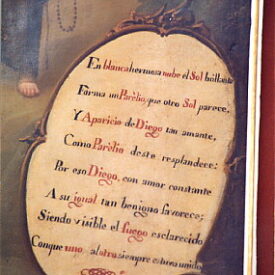 En blanca hermosa nube el Sol brillante
Forma un Parèlio, que otro Sol parece,
Y Aparicio de Diego tan amante,
Como Parèlio deste resplandece:
Por eso Diego, con amor constante
A su igual tan benigno favorece;
Siendo visible el fuego esclarecido
Conque uno, al otro siempre estuvo unido